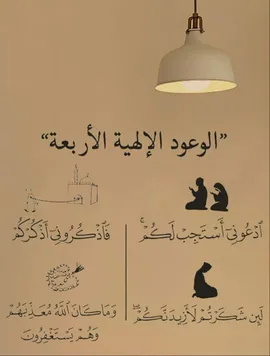 ”الوعود الإلهية الأربعة“
ٱدْعُونِىٓ أَسْتَجِبْ لَكُمْ ۚ
فَٱذْكُرُونِىٓ أَذْكُرْكُمْ
لَئِن شَكَرْتُمْ لَأَزِيدَنَّكُمْ ۖ
وَمَا كَانَ ٱللَّهُ مُعَذِّبَهُمْ
وَهُمْ يَسْتَغْفِرُونَ